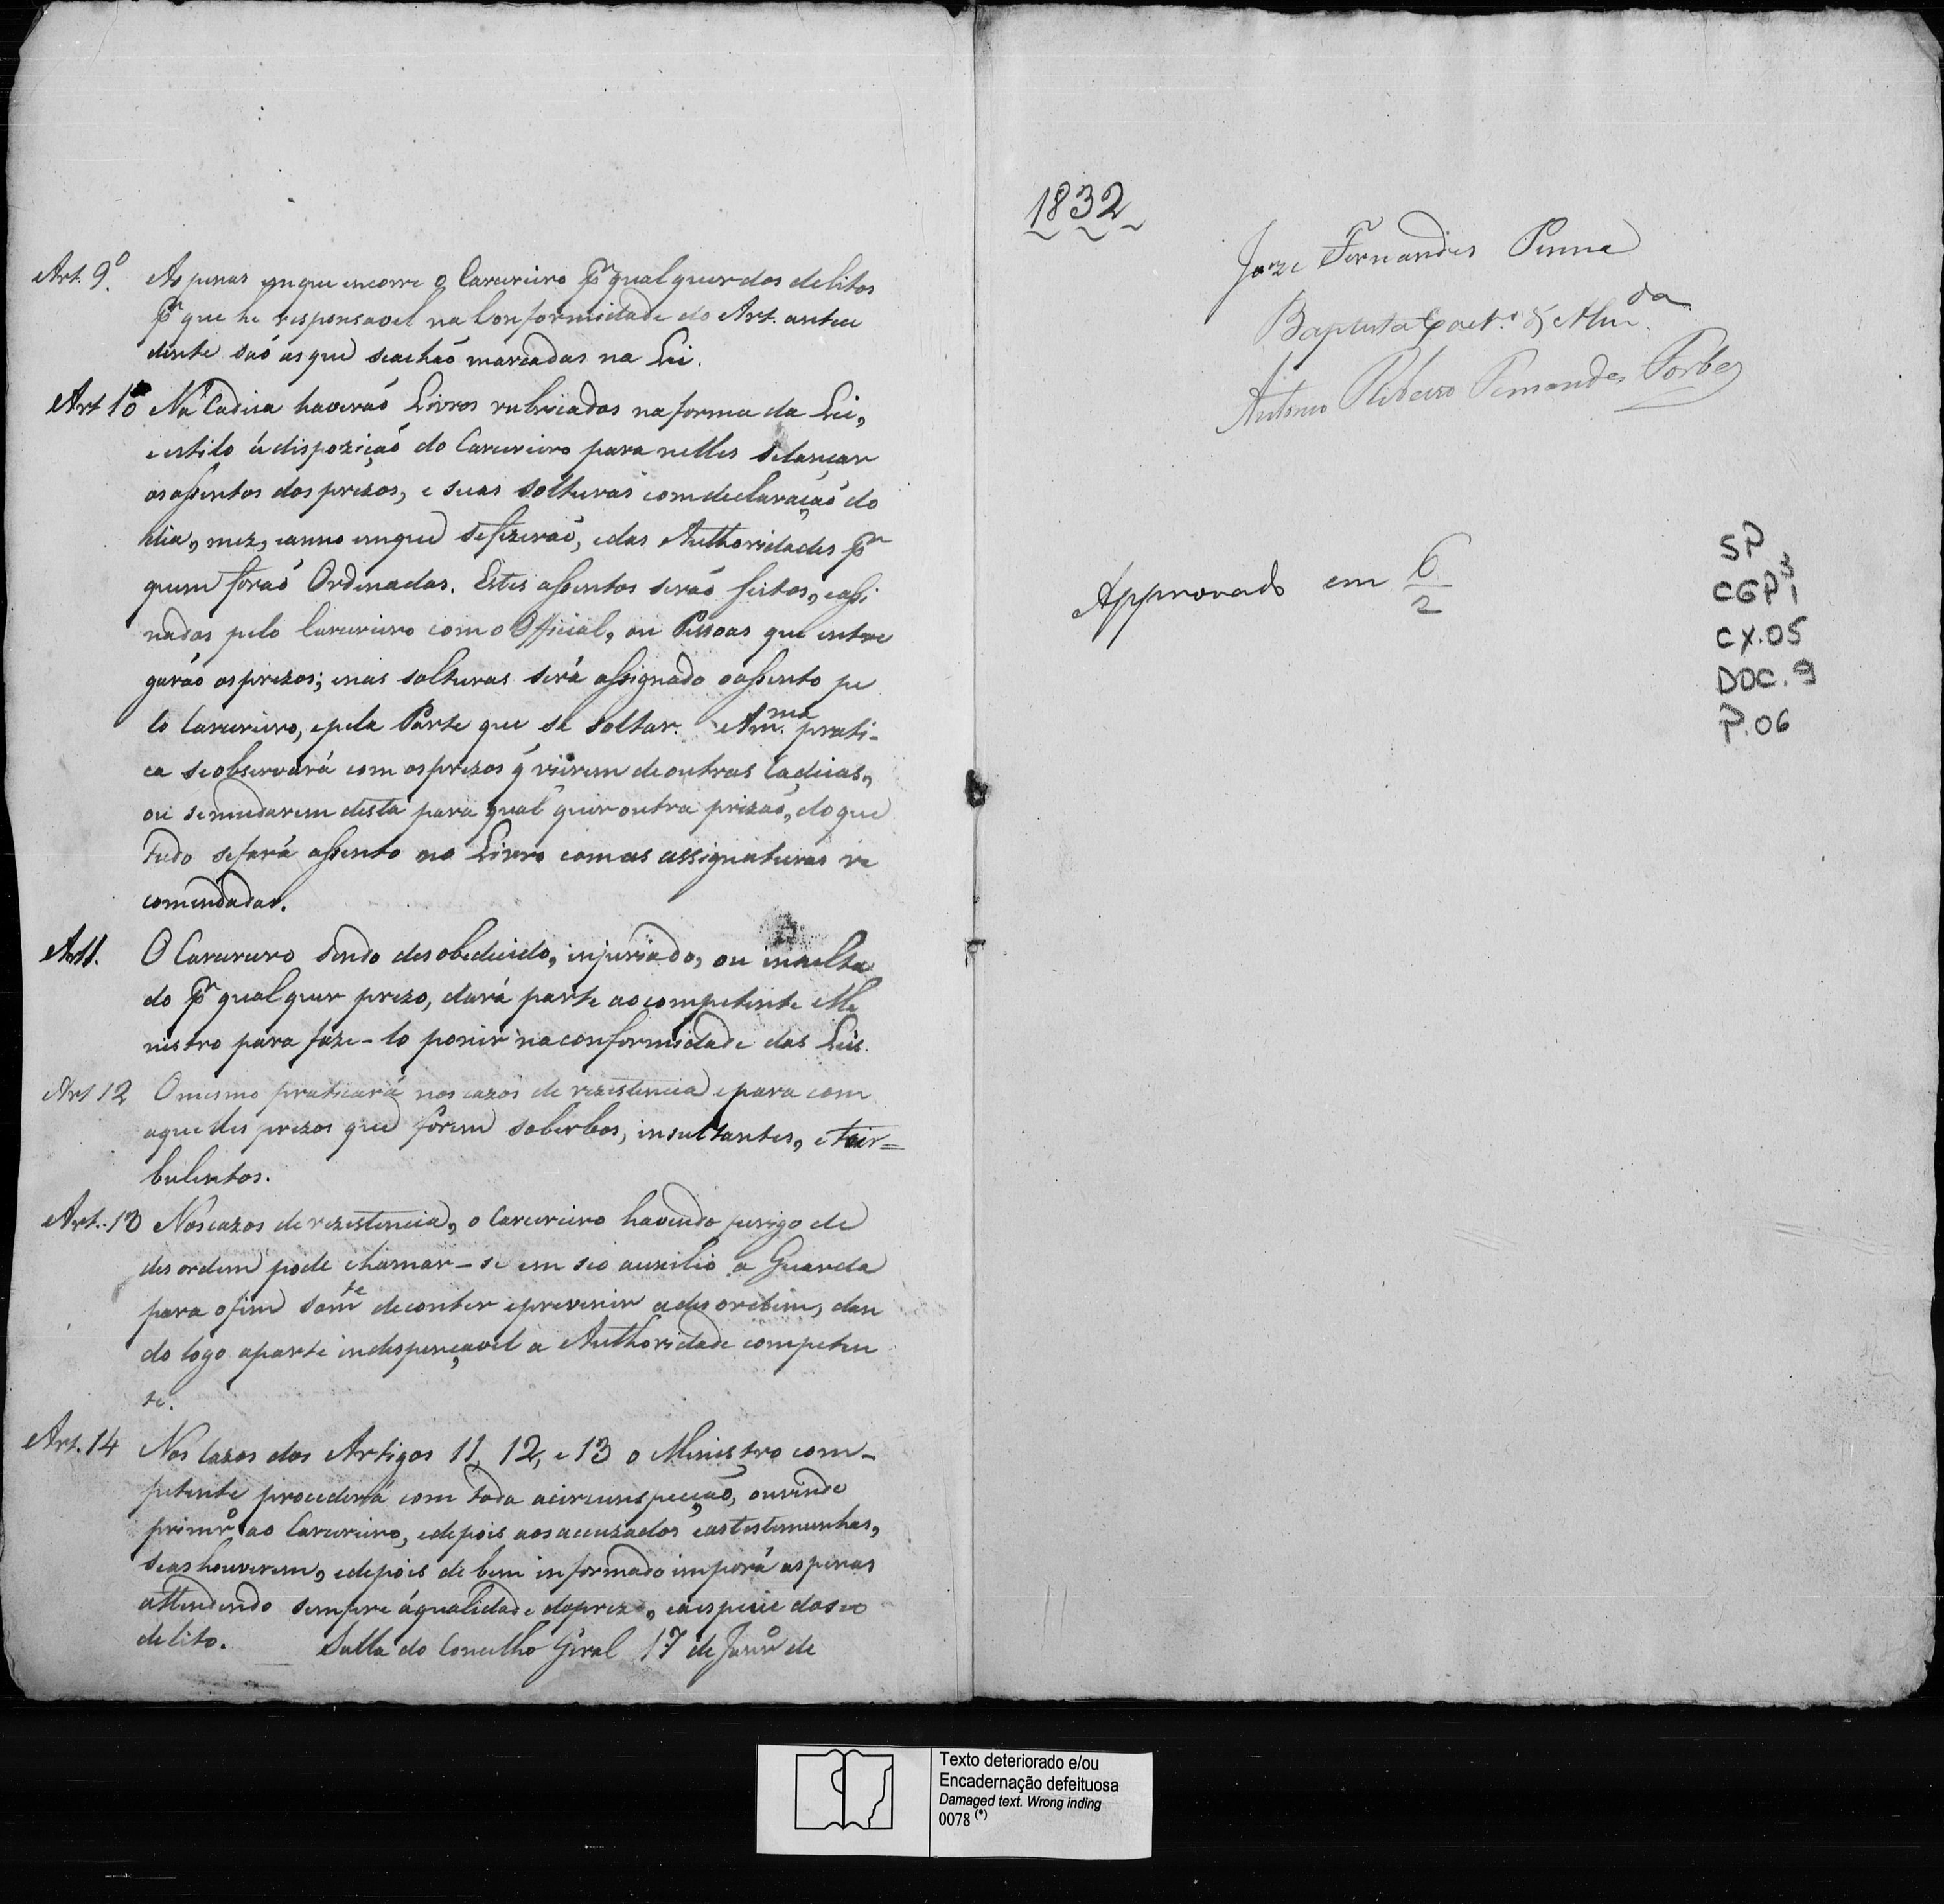 Art. 9.º As penas em que incorre o Carcereiro pr qualquer dos delitos
pr que he responsavel na Conformidade do Art. antece
dente saõ as que se achaõ marcadas na Lei.
Art 10 Na Cadeia haveraõ Livros rubricados na forma da Lei,
e estilo á dispoziçaõ do Carcereiro para nelles se lançar
os assentos dos prezos, e suas solturas com declaraçaõ do
dia, mez, e anno em que se fizeraõ, e das Authoridades pr
quem foraõ Ordenadas. Estes assentos seraõ feitos, e assi
nados pelo Carcereiro com o Official, ou Pessoas que entre
garáõ os prezos; e nas solturas será assignado o assento pe
lo Carcereiro, e pela Parte que se soltar. A m.ma prati-
ca se observará com os prezos q̃ vierem de outras Cadeias,
ou se mudarem desta para qual quer outra prizaõ, do que
tudo se fará assento no Livro com as assignaturas re
comendadas.
Art 11. O Carcereiro sendo desobedecido, injuriado, ou insulta
do pr qual quer prezo, dará parte ao competente Me
nistro para faze-lo ponir na conformidade das Leis.
Art 12 O mesmo praticará nos cazos de rezistencia e para com
aquelles prezos que forem soberbos, insultantes, e tur=
bulentos.
Art. 13 Nos cazos de rezistencia, o Carcereiro havendo perigo de
desordem pode chamar-se em seo auxilio a Guarda
para o fim som.te de conter e prevenir a desordem, dan
do logo a parte indespençavel a Authoridade competen
te.
Art. 14 Nos Cazos dos Artigos 11, 12, e 13 o Menistro com-
petente procederá com toda a circunspecçaõ, ouvindo
primr.o ao Carcereiro, e depois aos accuzados e as testemunhas,
se as houverem, e depois de bem informado imporá as penas
attendendo sempre á qualidade do prezo, e a especie do seo
delito. Salla do Concelho Geral 17 de Janr.o de
1832
Joze Fernandes Penna
Baptista Caet.o d'Alm.da
Antonio Ribeiro Fernandes Forbes
Approvado em 6/2
SP
CGP1 3
CX.05
DOC.9
P.06
Texto deteriorado e/ou
Encadernação defeituosa
Damaged text. Wrong inding
0078 (*)